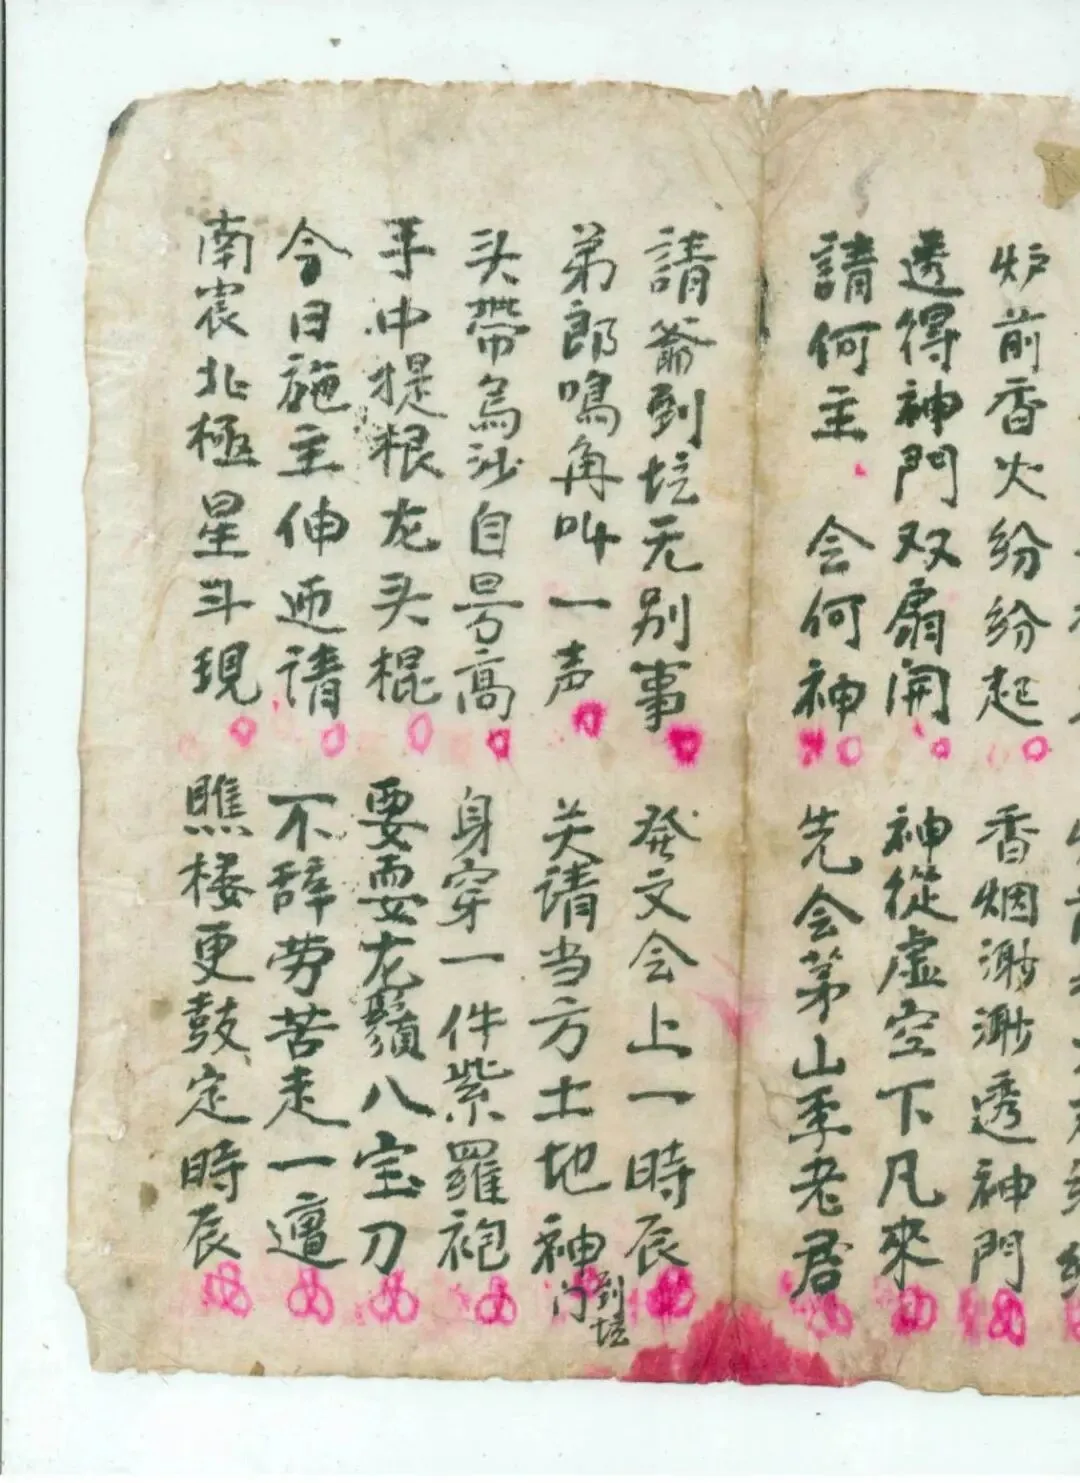 炉前香火纷纷起 香烟渺渺透神門
透得神門双扇開 神從虚空下凡來
請何主 会何神 先会茅山李老君
請爺到坛无别事 発文会上一時辰
弟郎鳴角叫一声 关请当方土地神
门 到坛
头帶烏沙自号高 身穿一件紫羅袍
手中提根龙头棍 要耍龙鬚八宝刀
今日施主伸迊请 不辞劳苦走一遭
南宸北極星斗現 瞧楼更鼓定時辰